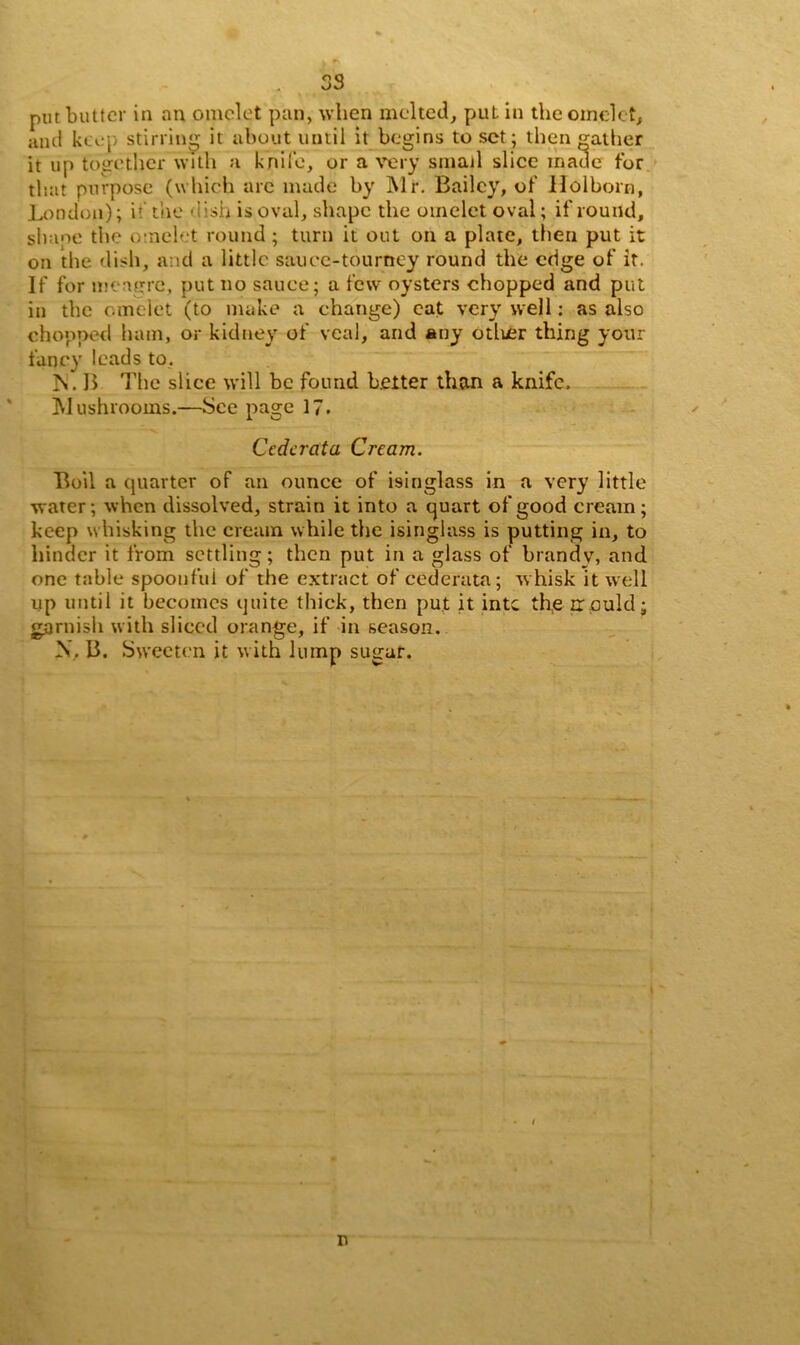 33
put butter in an omelet pan, when melted, put in the omelet,
and keep stirring it about until it begins to set; then gather
it up together with a knife, or a very small slice made for
that purpose (which are made by Mr. Bailey, of Holborn,
London); if the dish is oval, shape the omelet oval; if round,
shape the omelet round; turn it out on a plate, then put it
on the dish, and a little sauce-tourney round the edge of it.
If for meagre, put no sauce; a few oysters chopped and put
in the omelet (to make a change) eat very well: as also
chopped ham, or kidney of veal, and any other thing your
fancy leads to.
N. B The slice will be found better than a knife.
Mushrooms.—See page 17.
Cederata Cream.
Boil a quarter of an ounce of isinglass in a very little
water; when dissolved, strain it into a quart of good cream;
keep whisking the cream while the isinglass is putting in, to
hinder it from settling; then put in a glass of brandy, and
one table spoonful of the extract of cederata; whisk it well
up until it becomes quite thick, then put it into the mould;
garnish with sliced orange, if in season.
N. B. Sweeten it with lump sugar.
D